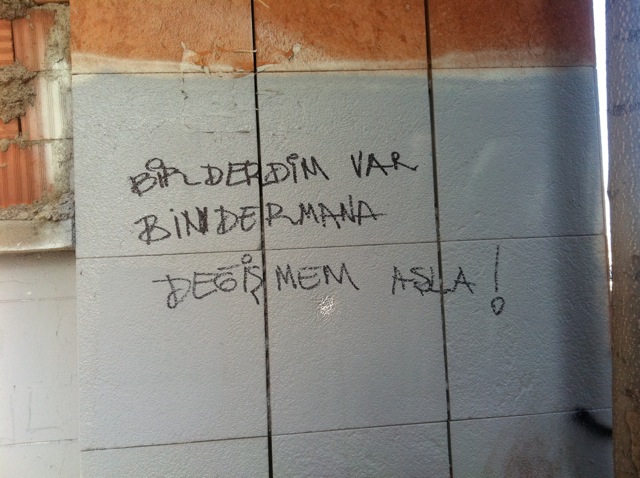 BİR DERDİM VAR
BİN DERMANA
DEĞİŞMEM ASLA!